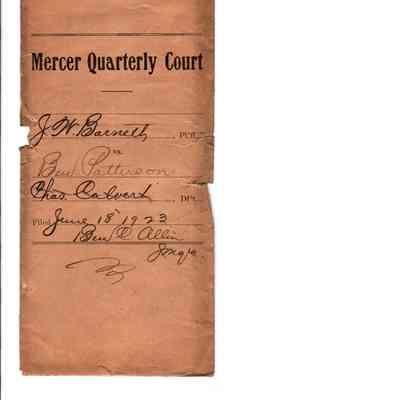 Mercer Quarterly Court
J. W. Barnett, Pltf.
vs
Ben Patterson
Chas. Calvert, Dft.
Filed June 18 1923
Ben C Allin